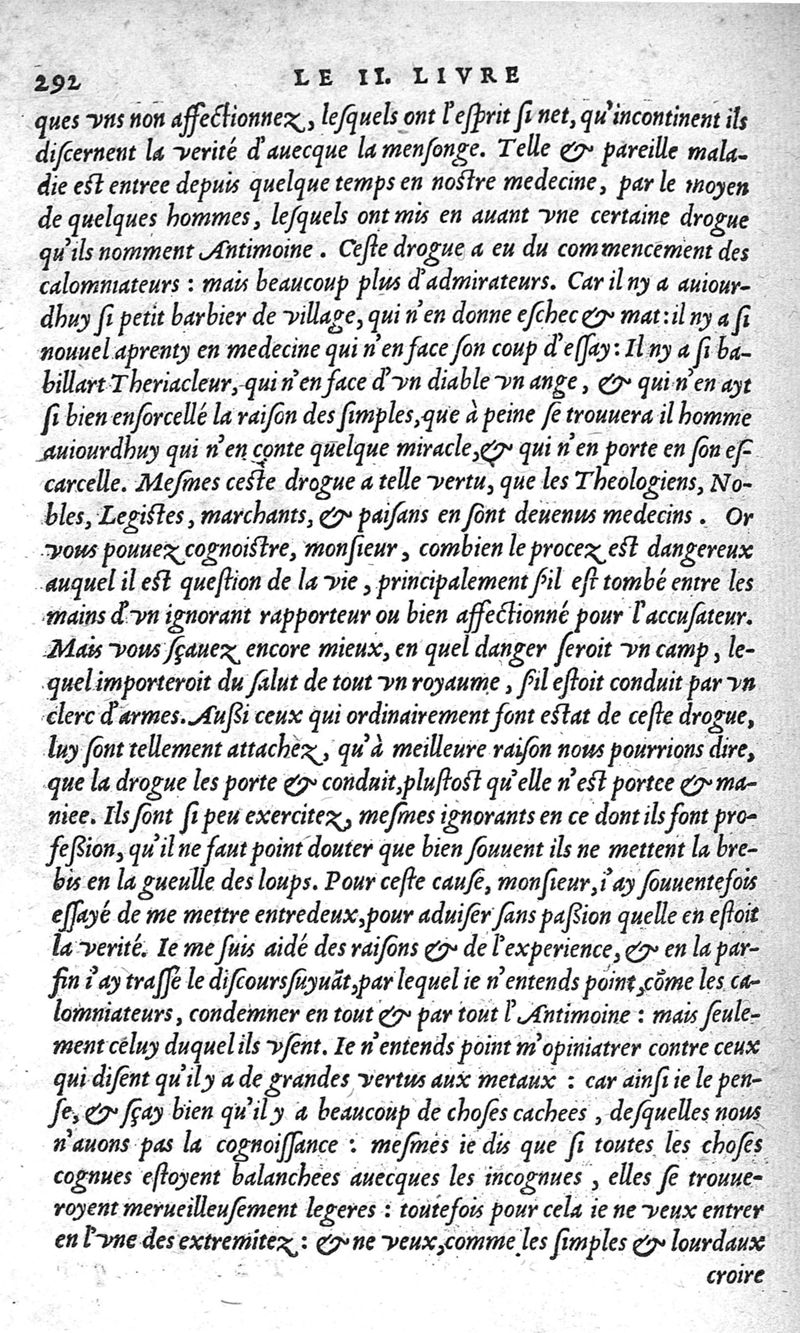 292 LE II. LIVRE
ques vns non affectionnez, leſquels ont l'eſprit ſi net, qu'incontinent ils
diſcernent la verité d'auecque la menſonge. Telle & pareille mala-
die eſt entree depuis quelque temps en noſtre medecine, par le moyen
de quelques hommes, leſquels ont mis en auant vne certaine drogue
qu'ils nomment Antimoine. Ceſte drogue a eu du commencement des
calomniateurs : mais beaucoup plus d'admirateurs. Car il ny a auiour-
dhuy ſi petit barbier de village, qui n'en donne eſchec & mat : il ny a ſi
nouuel aprenty en medecine qui n'en face ſon coup d'eſſay : Il ny a ſi ba-
billart Theriacleur, qui n'en face d'vn diable vn ange, & qui n'en ayt
ſi bien enſorcellé la raiſon des ſimples, que à peine ſe trouuera il homme
auiourdhuy qui n'en conte quelque miracle, & qui n'en porte en ſon eſ-
carcelle. Meſmes ceſte drogue a telle vertu, que les Theologiens, No-
bles, Legiſtes, marchants, & paiſans en ſont deuenus medecins. Or
vous pouuez cognoiſtre, monſieur, combien le procez eſt dangereux
auquel il eſt queſtion de la vie, principalement ſ'il eſt tombé entre les
mains d'vn ignorant rapporteur ou bien affectionné pour l'accuſateur.
Mais vous ſçauez encore mieux, en quel danger ſeroit vn camp, le-
quel importeroit du ſalut de tout vn royaume, ſ'il eſtoit conduit par vn
clerc d'armes. Auſsi ceux qui ordinairement font eſtat de ceſte drogue,
luy ſont tellement attachez, qu'à meilleure raiſon nous pourrions dire,
que la drogue les porte & conduit, pluſtoſt qu'elle n'eſt portee & ma-
niee. Ils ſont ſi peu exercitez, meſmes ignorants en ce dont ils font pro-
feſsion, qu'il ne faut point douter que bien ſouuent ils ne mettent la bre-
bis en la gueulle des loups. Pour ceſte cauſe, monſieur, i'ay ſouuentefois
eſſayé de me mettre entredeux, pour aduiſer ſans paſsion quelle en eſtoit
la verité. Ie me ſuis aidé des raiſons & de l'experience, & en la par-
fin i'ay traſſé le diſcours ſuyuãt, par lequel ie n'entends point, cõme les ca-
lomniateurs, condemner en tout & par tout l'Antimoine : mais ſeule-
ment celuy duquel ils vſent. Ie n'entends point m'opiniatrer contre ceux
qui diſent qu'il y a de grandes vertus aux metaux : car ainſi ie le pen-
ſe, & ſçay bien qu'il y a beaucoup de choſes cachees, deſquelles nous
n'auons pas la cognoiſſance : meſmes ie dis que ſi toutes les choſes
cognues eſtoyent balanchees auecques les incognues, elles ſe trouue-
royent merueilleuſement legeres : toutefois pour cela ie ne veux entrer
en l'vne des extremitez : & ne veux, comme les ſimples & lourdaux
croire